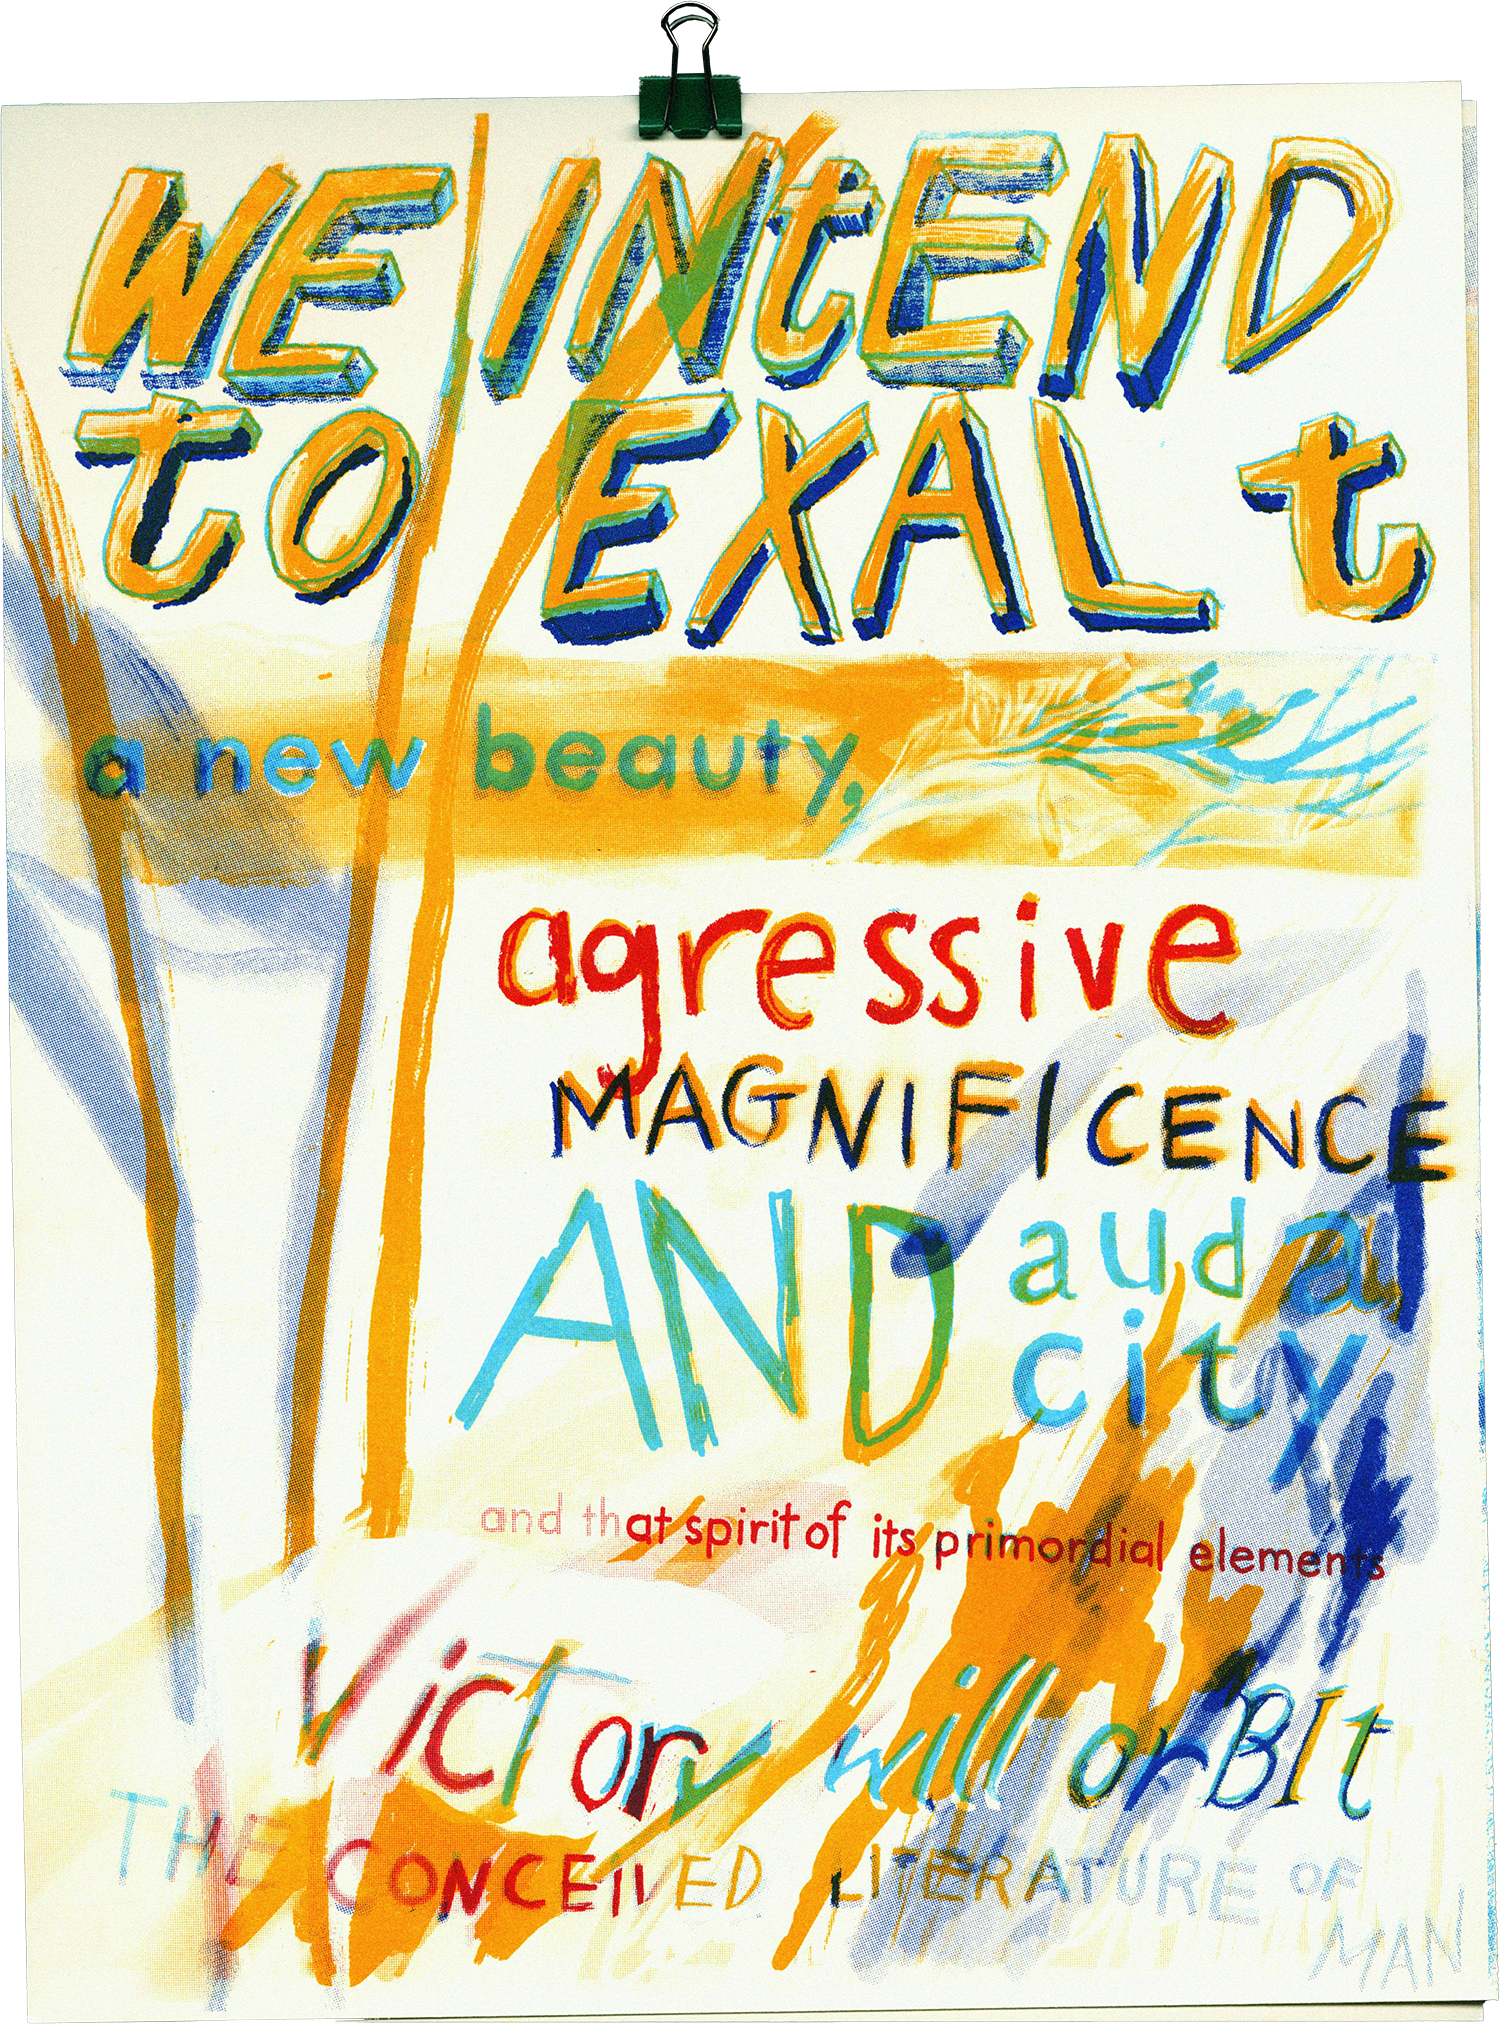 WE INtEND
tO EXALt
a new beauty,
agressive
MAGNIFICENCE
AND auda
city
and that spirit of its primordial elements
VicTory will orBIt
THE CONCEIVED LITERATURE OF
MAN